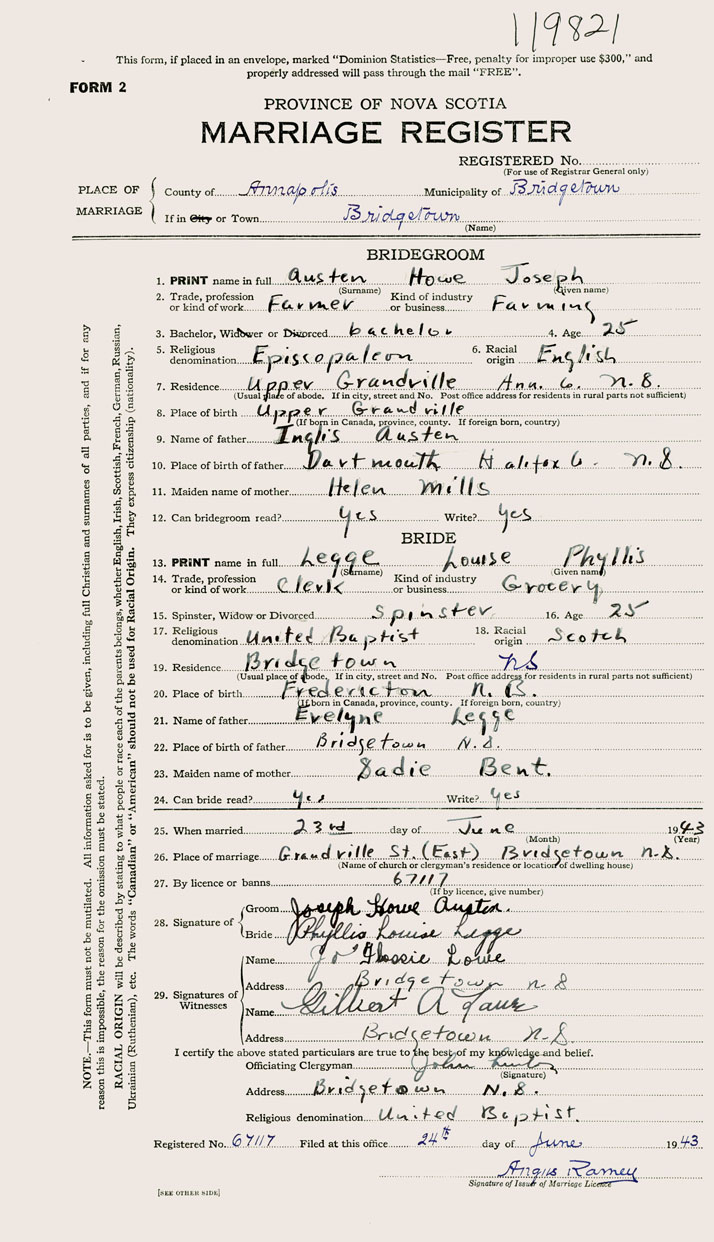 119821
This form, if placed in an envelope, marked “Dominion Statistics—Free, penalty for improper use $300,” and
properly addressed will pass through the mail “FREE”.
FORM 2
PROVINCE OF NOVA SCOTIA
MARRIAGE REGISTER
REGISTERED No.
(For use of Registrar General only)
PLACE OF MARRIAGE
County of Annapolis Municipality of Bridgetown
If in City or Town Bridgetown
(Name)
BRIDEGROOM
1. PRINT name in full Austen Howe Joseph
(Surname) (Given name)
2. Trade, profession or kind of work Farmer Kind of industry or business Farming
3. Bachelor, Widower or Divorced bachelor 4. Age 25
5. Religious denomination Episcopaleon 6. Racial origin English
7. Residence Upper Grandville Ann. Co. N.S.
(Usual place of abode. If in city, street and No. Post office address for residents in rural parts not sufficient)
8. Place of birth Upper Grandville
(If born in Canada, province, county. If foreign born, country)
9. Name of father Inglis Austen
10. Place of birth of father Dartmouth Halifox Co. N.S.
11. Maiden name of mother Helen Mills
12. Can bridegroom read? Yes Write? Yes
BRIDE
13. PRINT name in full Legge Louise Phyllis
(Surname) (Given name)
14. Trade, profession or kind of work Clerk Kind of industry or business Grocery
15. Spinster, Widow or Divorced Spinster 16. Age 25
17. Religious denomination United Baptist 18. Racial origin Scotch
19. Residence Bridgetown NS
(Usual place of abode. If in city, street and No. Post office address for residents in rural parts not sufficient)
20. Place of birth Fredericton N.B.
(If born in Canada, province, county. If foreign born, country)
21. Name of father Evelyne Legge
22. Place of birth of father Bridgetown N.S.
23. Maiden name of mother Sadie Bent.
24. Can bride read? Yes Write? Yes
25. When married 23rd day of June 1943
(Month) (Year)
26. Place of marriage Grandville St. (East) Bridgetown N.S.
(Name of church or clergyman's residence or location of dwelling house)
27. By licence or banns 67117
(If by licence, give number)
28. Signature of Groom Joseph Howe Austen.
Bride Phyllis Louise Legge
29. Signatures of Witnesses
Name Flossie Lowe
Address Bridgetown N S
Name Gilbert A
Address Bridgetown N.S.
I certify the above stated particulars are true to the best of my knowledge and belief.
Officiating Clergyman John
(Signature)
Address Bridgetown N.S.
Religious denomination United Baptist.
Registered No. 67117 Filed at this office 24th day of June 1943
Angus Ramey
Signature of Issuer of Marriage Licence
[SEE OTHER SIDE]
NOTE.—This form must not be mutilated. All information asked for is to be given, including full Christian and surnames of all parties, and if for any
reason this is impossible, the reason for the omission must be stated.
RACIAL ORIGIN will be described by stating to what people or race each of the parents belongs, whether English, Irish, Scottish, French, German, Russian,
Ukrainian (Ruthenian), etc. The words “Canadian” or “American” should not be used for Racial Origin. They express citizenship (nationality).